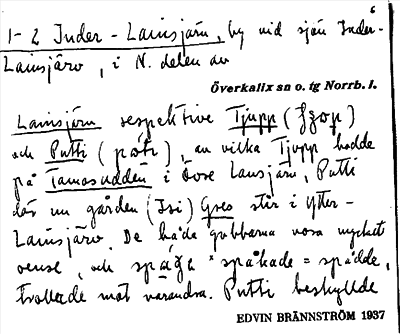 6
1-2 Inder-Lansjärv, by vid sjön Inder-
Lansjärv, i N. delen av
Överkalix sn o. tg Norrb. l.
Lansjärv respektive Tjupp (
och Putti (), av vilka Tjupp bodde
på Tamasudden i övre Lansjärv, Putti
där nu gården (Isi) Gres står i Ytter-
Lansjärv. De båda gubbarna voro mycket
ovense, och spåga "spåkade = spådde,
trollade mot varandra. Putti beskyllde
EDVIN BRÄNNSTRÖM 1937